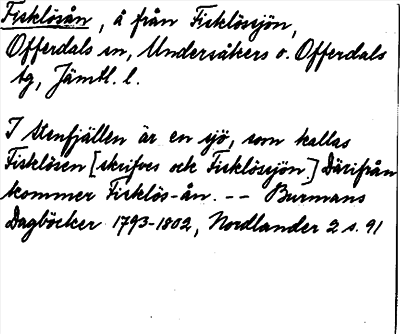 Fisklösån, å från Fisklössjön,
Offerdals sn, Undersåkers o. Offerdals
tg, Jämtl. l.
I Stenfjällen är en sjö, som kallas
Fisklösen [skrifves ock Fisklössjön] Därifrån
kommer Fisklös-ån. -- Burmans
Dagböcker 1793-1802, Nordlander 2 s. 91